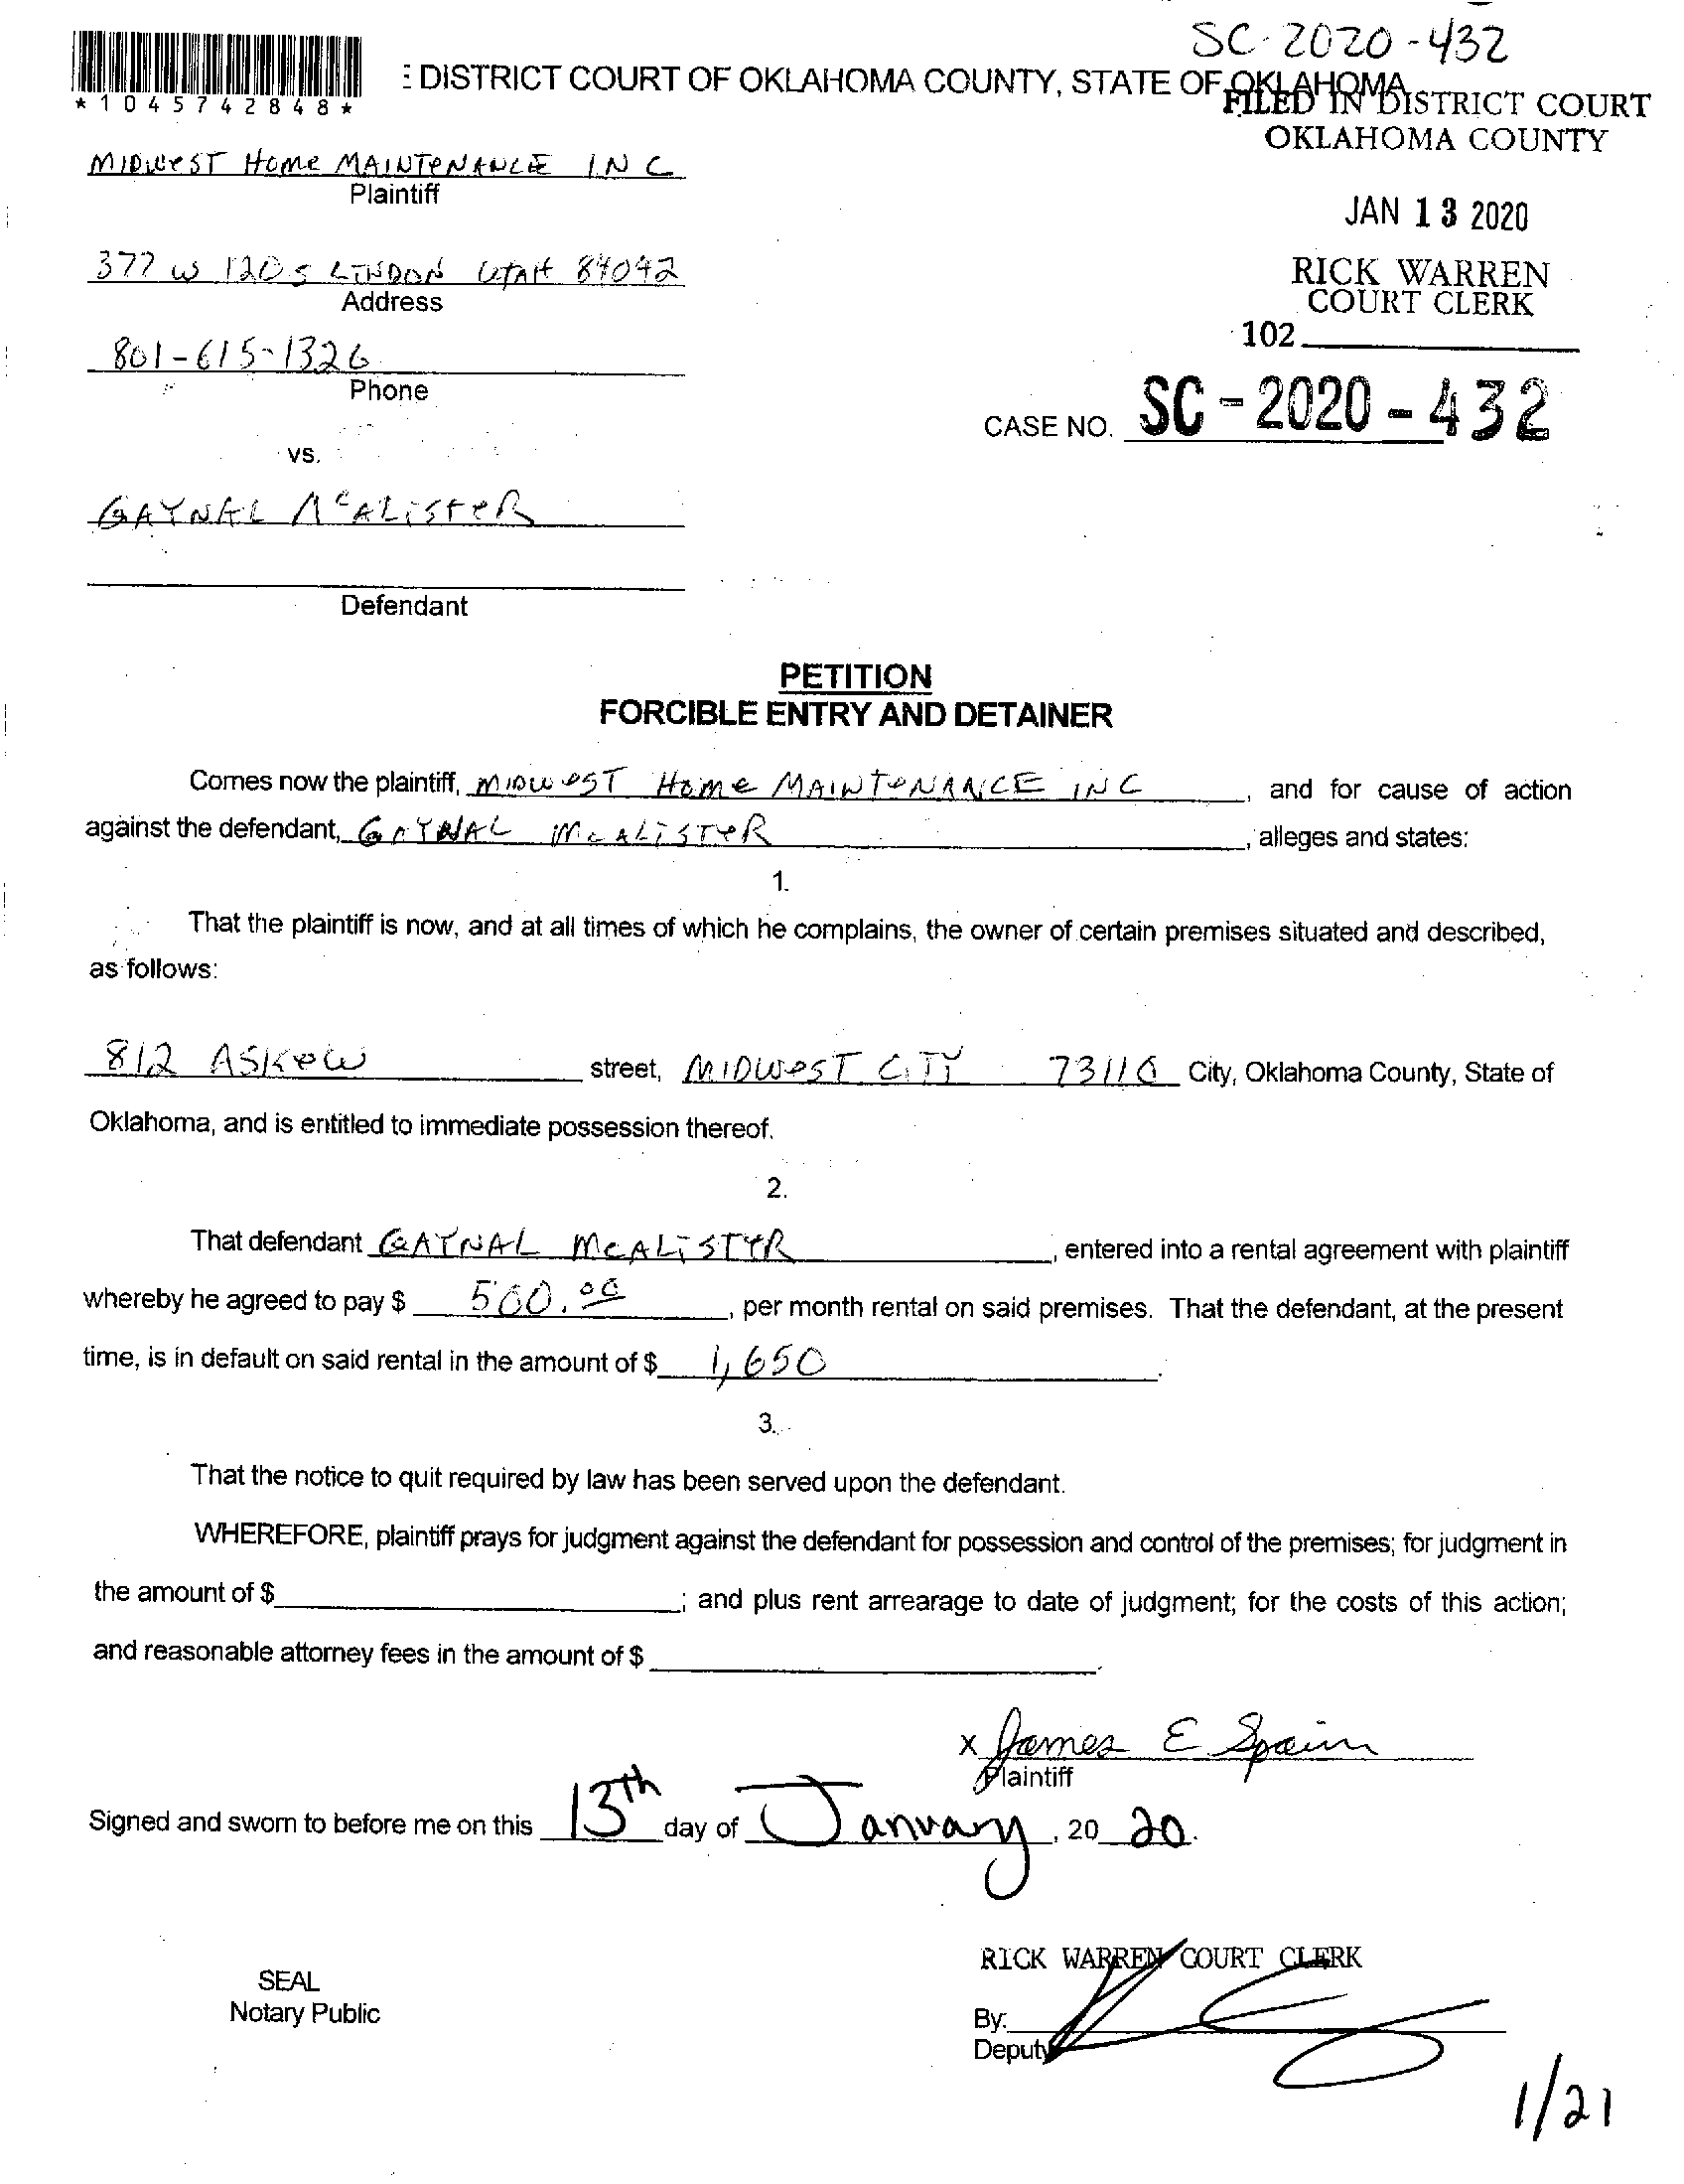 SC-2020-432
DISTRICT COURT OF OKLAHOMA COUNTY, STATE OF OKLAHOMA
*1045742848*
FILED IN DISTRICT COURT
OKLAHOMA COUNTY
MIDWEST Home MAINTENANCE INC
Plaintiff
JAN 13 2020
377 W 120 S LINDON UTAH 84042
Address
RICK WARREN
COURT CLERK
102
801-615-1326
Phone
CASE NO. SC-2020-432
vs.
GAYNAL McALISTER
Defendant
PETITION
FORCIBLE ENTRY AND DETAINER
Comes now the plaintiff, MIDWEST Home MAINTENANCE INC, and for cause of action
against the defendant, GAYNAL McALISTER, alleges and states:
1.
That the plaintiff is now, and at all times of which he complains, the owner of certain premises situated and described,
as follows:
812 ASKEW street, MIDWEST CITY 73110 City, Oklahoma County, State of
Oklahoma, and is entitled to immediate possession thereof.
2.
That defendant GAYNAL McALISTER, entered into a rental agreement with plaintiff
whereby he agreed to pay $ 500.00, per month rental on said premises. That the defendant, at the present
time, is in default on said rental in the amount of $ 1,650.
3.
That the notice to quit required by law has been served upon the defendant.
WHEREFORE, plaintiff prays for judgment against the defendant for possession and control of the premises; for judgment in
the amount of $; and plus rent arrearage to date of judgment; for the costs of this action;
and reasonable attorney fees in the amount of $.
x James E Spain
Plaintiff
Signed and sworn to before me on this 13th day of January, 20 20.
RICK WARREN COURT CLERK
SEAL
Notary Public
By:
Deputy
1/21